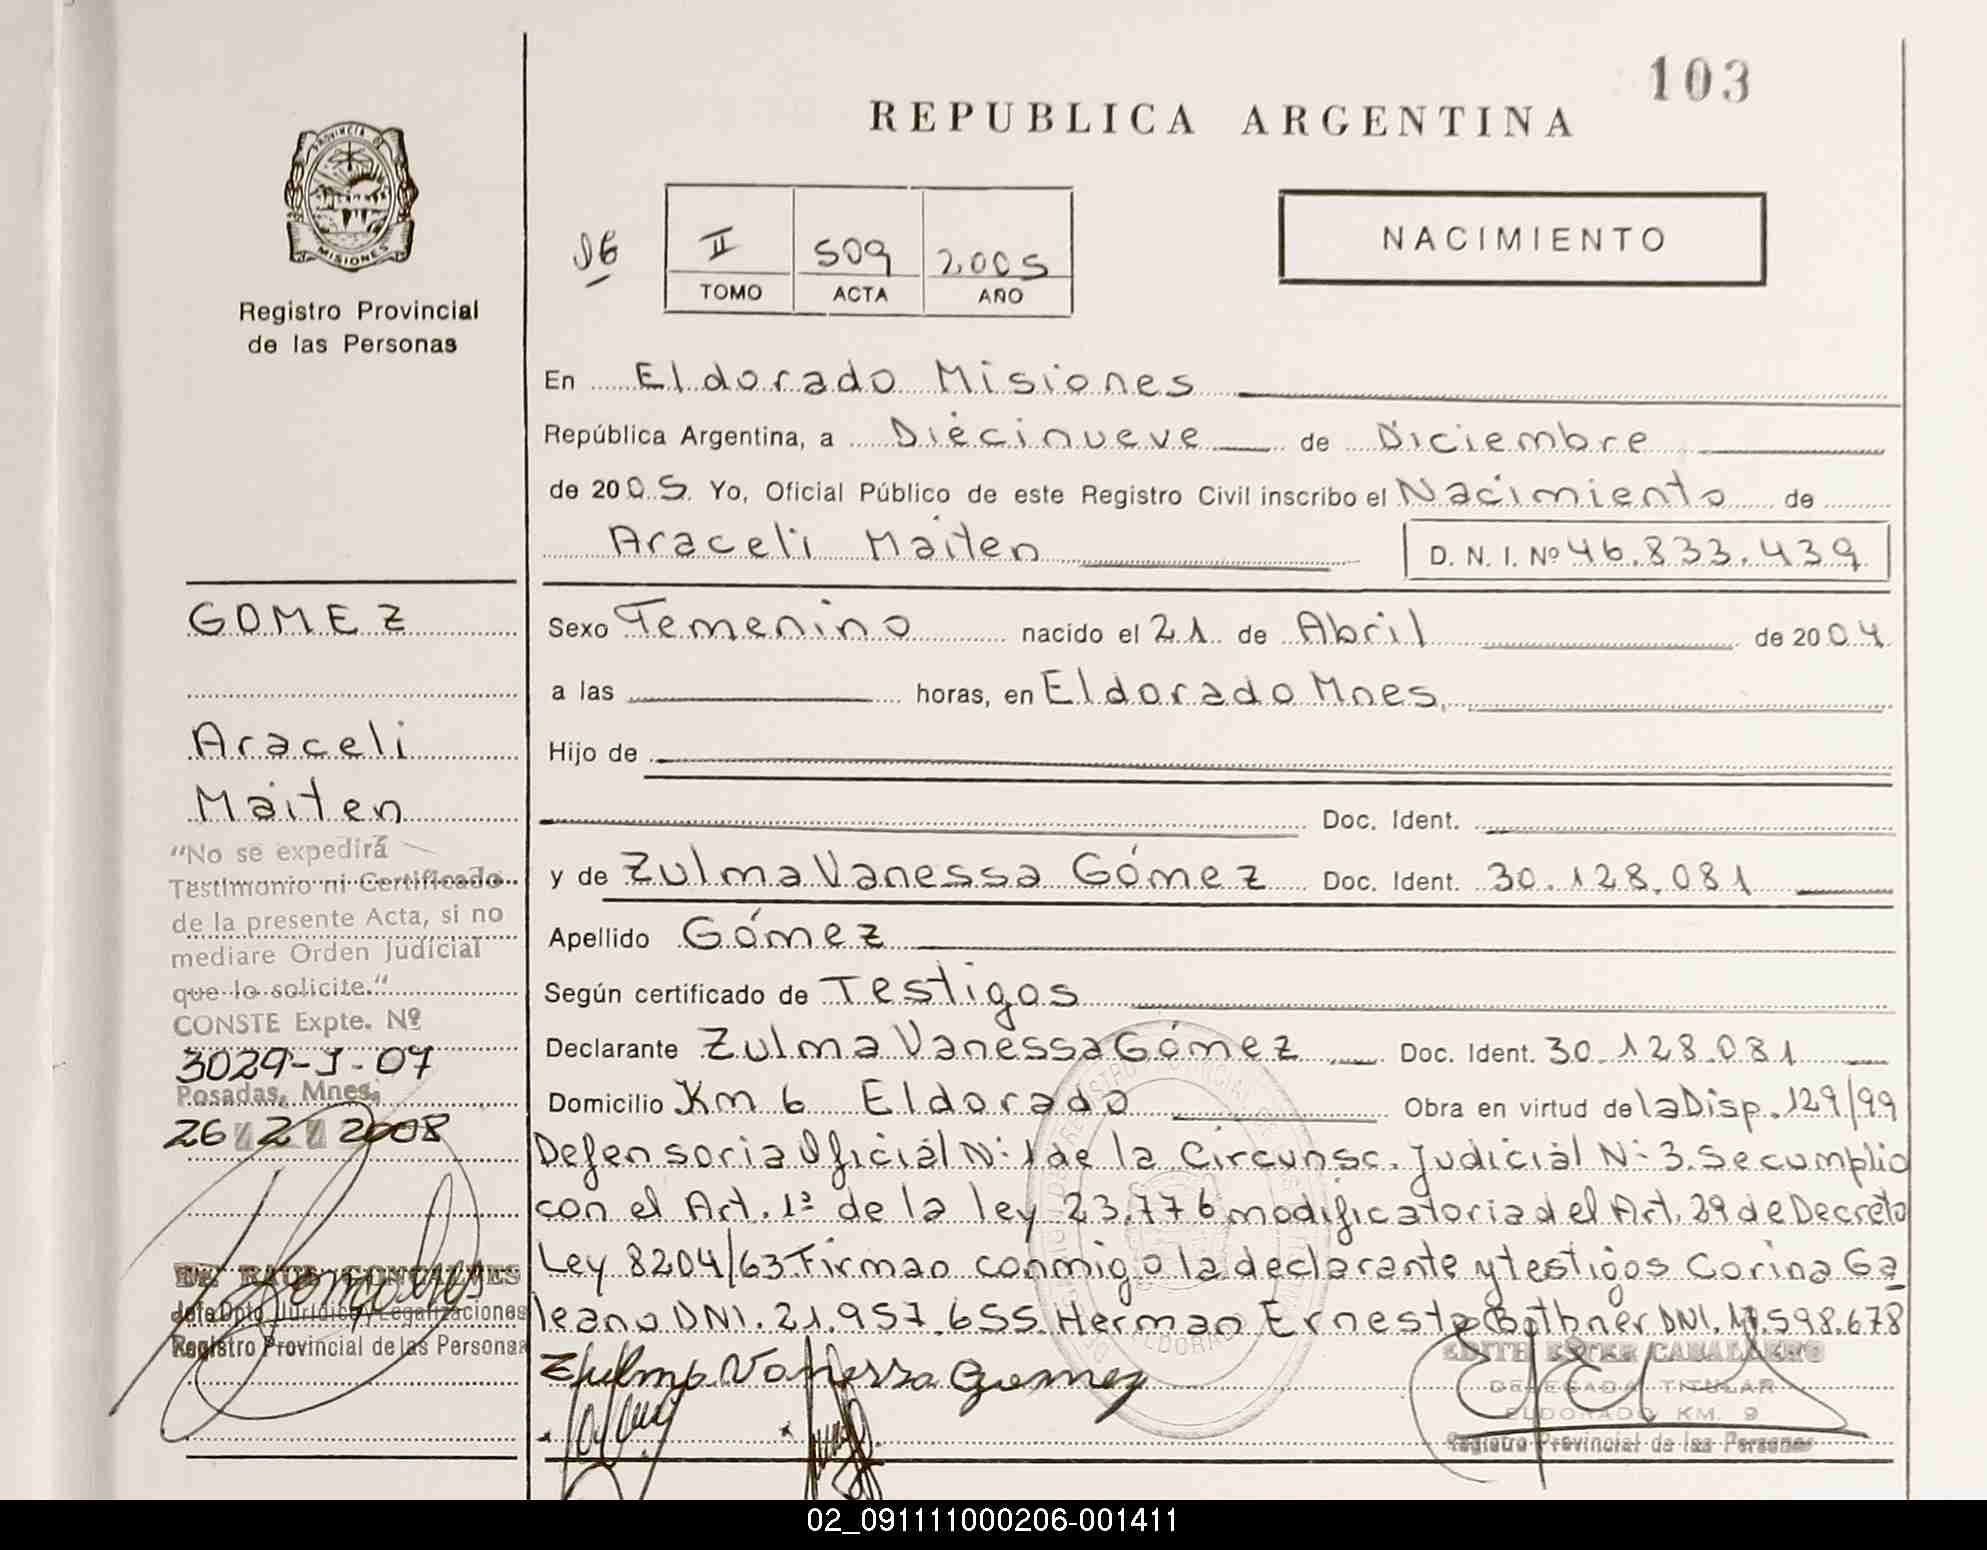 103
REPUBLICA ARGENTINA
PROVINCIA DE
MISIONES
Registro Provincial
de las Personas
II 509 2005
TOMO ACTA AÑO
NACIMIENTO
En Eldorado Misiones
República Argentina, a Diecinueve de Diciembre
de 2005. Yo, Oficial Público de este Registro Civil inscribo el Nacimiento de
Araceli Maiten D. N. I. Nº 46.833.439
GOMEZ
Araceli
Maiten
Sexo Femenino nacido el 21 de Abril de 2004
a las horas, en Eldorado Mnes.
Hijo de
Doc. Ident.
y de Zulma Vanessa Gómez Doc. Ident. 30.128.081
Apellido Gómez
Según certificado de Testigos
Declarante Zulma Vanessa Gómez Doc. Ident. 30.128.081
Domicilio Km 6 Eldorado Obra en virtud de la Disp. 129/99
Defensoria Oficial Nº 1 de la Circunsc. Judicial Nº 3. Se cumplio
con el Art. 1º de la ley 23.776 modificatoria del Art. 29 de Decreto
Ley 8204/63. Firman conmigo la declarante y testigos Corina Ga
leano DNI. 21.957.655. Herman Ernesto Bothner DNI. 17.598.678
Zulma Vanessa Gomez
"No se expedirá
Testimonio ni Certificado
de la presente Acta, si no
mediare Orden Judicial
que lo solicite."
CONSTE Expte. Nº
3029-J-07
Posadas, Mnes.
26 2 2008
DR. RAUL GONCALVES
Jefe Dpto. Jurídico y Legalizaciones
Registro Provincial de las Personas
EDITH ESTER CABALLERO
DELEGADA TITULAR
ELDORADO KM. 9
Registro Provincial de las Personas
02_091111000206-001411